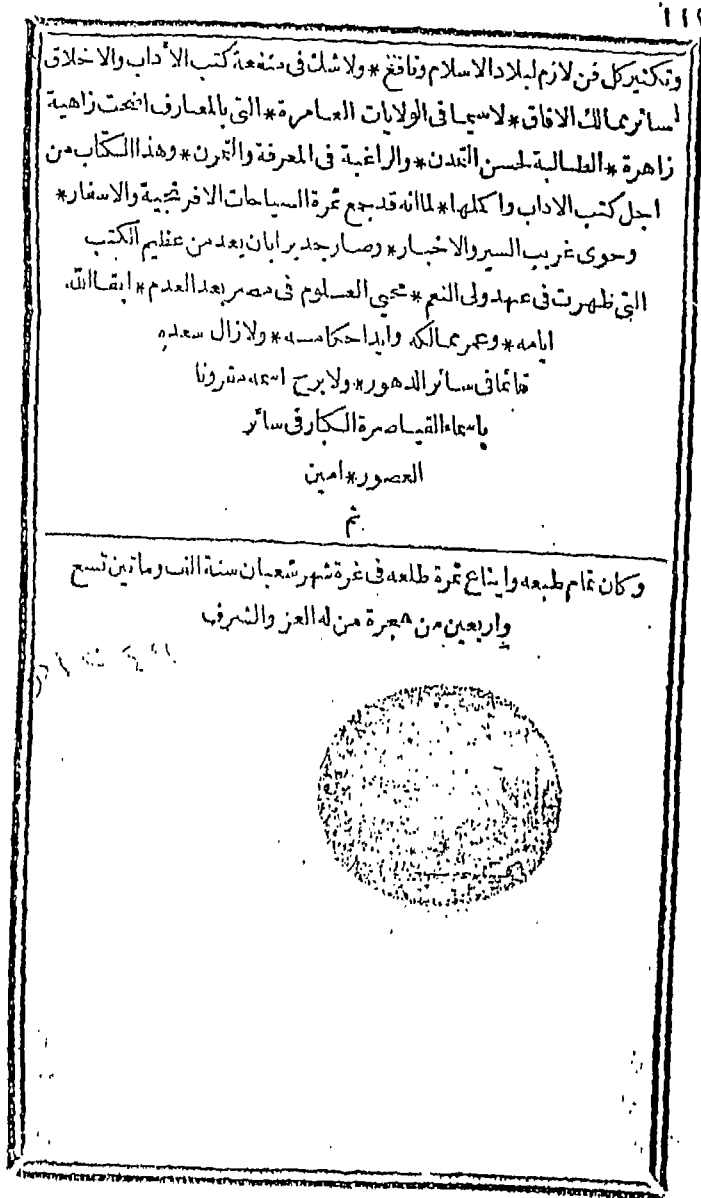 ١١٢
وتكثير كل فن لازم لبلاد الاسلام ونافع * ولاشك فى منفعة كتب الأداب والاخلاق
لسائر ممالك الافاق * لاسيما فى الولايات العامرة * التى بالمعارف اضحت زاهية
زاهرة * الطالبة لحسن التمدن * والراغبة فى المعرفة والتمرن * وهذا الكتاب من
اجل كتب الاداب واكملها * لما انه قد جمع ثمرة السياحات الافرنجية والاسفار *
وحوى غريب السير والاخبار * وصار جديرا بان يعد من عظيم الكتب
التى ظهرت فى عهد ولى النعم * محيى العلوم فى مصر بعد العدم * ابقا الله
ايامه * وعمر ممالكه وايد احكامه * ولازال سعده
قائما فى سائر الدهور * ولا برح اسمه مقرونا
باسماء القياصرة الكبار فى سائر
العصور * امين
تم
وكان تمام طبعه وايناع ثمرة طلعه فى غرة شهر شعبان سنة الف ومائتين تسع
واربعين من هجرة من له العز والشرف